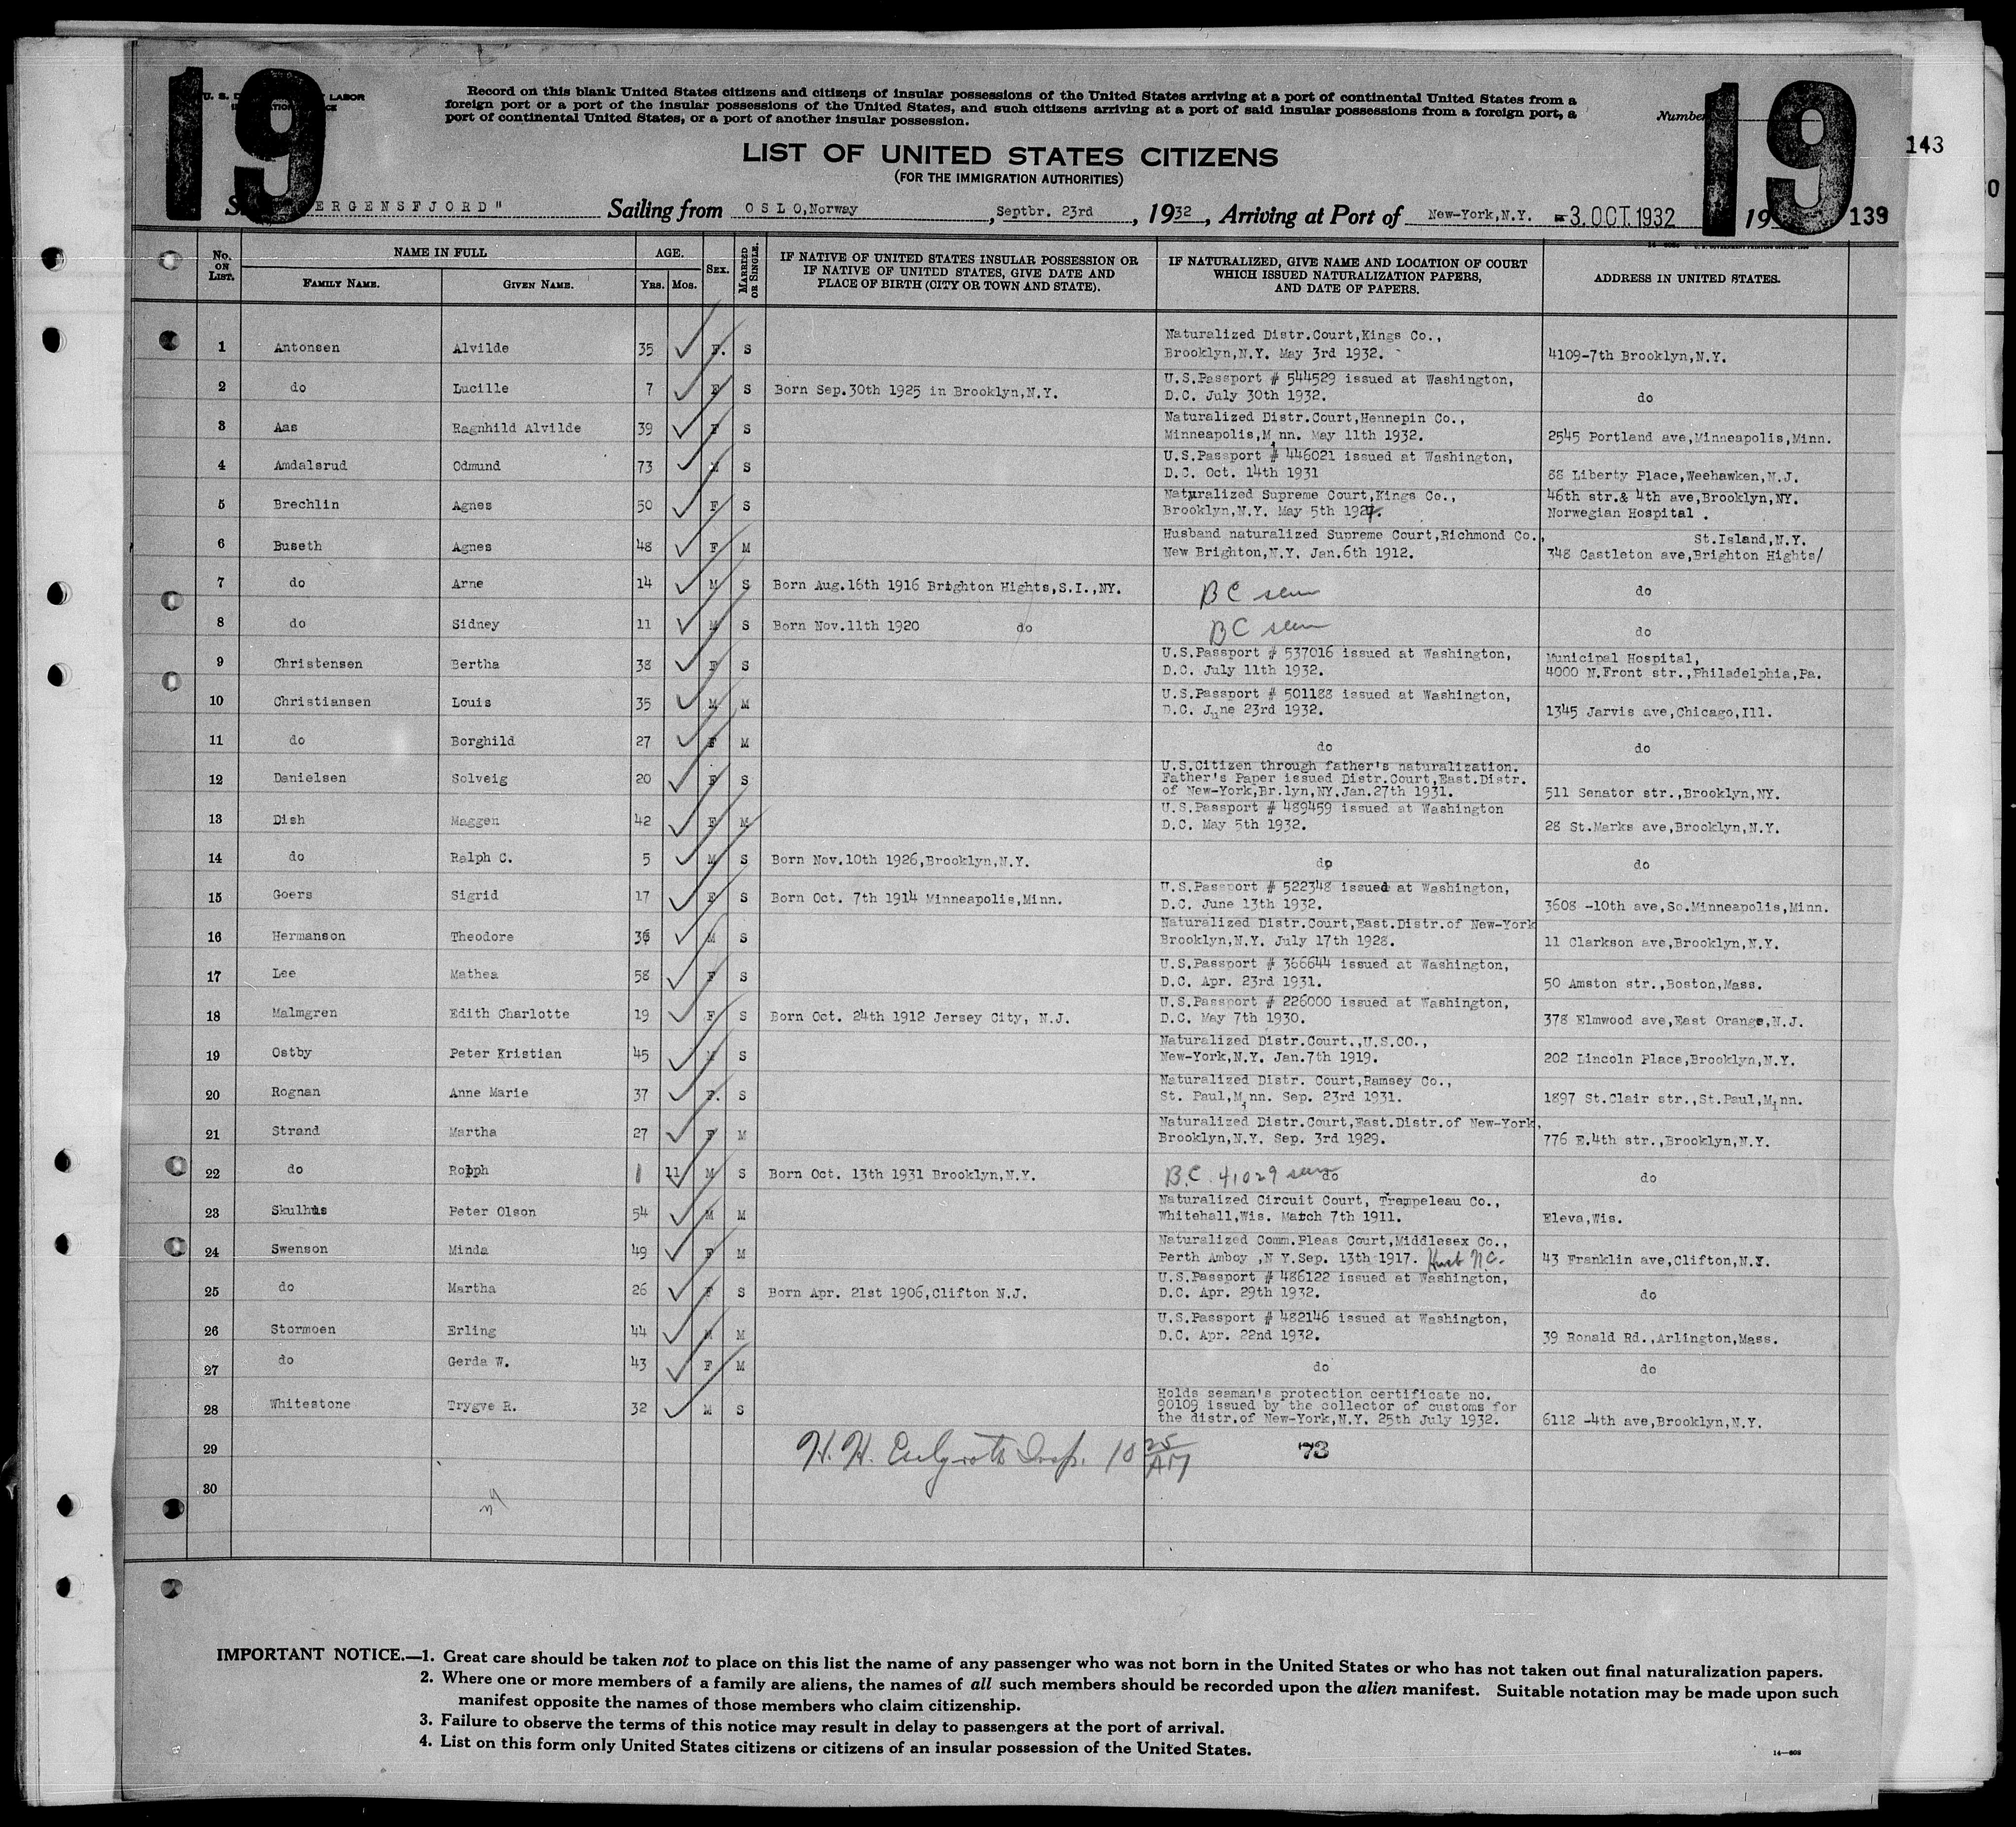 19
19
U. S. D LABOR
Record on this blank United States citizens and citizens of insular possessions of the United States arriving at a port of continental United States from a
foreign port or a port of the insular possessions of the United States, and such citizens arriving at a port of said insular possessions from a foreign port, a
port of continental United States, or a port of another insular possession.
Number
143
LIST OF UNITED STATES CITIZENS
(FOR THE IMMIGRATION AUTHORITIES)
S ERGENSFJORD" Sailing from OSLO,Norway, Septbr. 23rd, 1932, Arriving at Port of New-York,N.Y. -3.OCT.1932 19 139
No. ON LIST. NAME IN FULL AGE. SEX. MARRIED OR SINGLE. IF NATIVE OF UNITED STATES INSULAR POSSESSION OR IF NATIVE OF UNITED STATES, GIVE DATE AND PLACE OF BIRTH (CITY OR TOWN AND STATE). IF NATURALIZED, GIVE NAME AND LOCATION OF COURT WHICH ISSUED NATURALIZATION PAPERS, AND DATE OF PAPERS. ADDRESS IN UNITED STATES.
FAMILY NAME. GIVEN NAME. Yrs. Mos.
1 Antonsen Alvilde 35 F. S Naturalized Distr.Court,Kings Co., Brooklyn,N.Y. May 3rd 1932. 4109-7th Brooklyn,N.Y.
2 do Lucille 7 F S Born Sep.30th 1925 in Brooklyn,N.Y. U.S.Passport # 544529 issued at Washington, D.C. July 30th 1932. do
3 Aas Ragnhild Alvilde 39 F S Naturalized Distr.Court,Hennepin Co., Minneapolis,Minn. May 11th 1932. 2545 Portland ave,Minneapolis,Minn.
4 Amdalsrud Odmund 73 M S U.S.Passport # 446021 issued at Washington, D.C. Oct. 14th 1931 88 Liberty Place,Weehawken,N.J.
5 Brechlin Agnes 50 F S Naturalized Supreme Court,Kings Co., Brooklyn,N.Y. May 5th 1927. 46th str.& 4th ave,Brooklyn,NY. Norwegian Hospital .
6 Buseth Agnes 48 F M Husband naturalized Supreme Court,Richmond Co., New Brighton,N.Y. Jan.6th 1912. St.Island,N.Y. 348 Castleton ave,Brighton Hights/
7 do Arne 14 M S Born Aug.16th 1916 Brighton Hights,S.I.,NY. BC seen do
8 do Sidney 11 M S Born Nov.11th 1920 do BC seen do
9 Christensen Bertha 38 F S U.S.Passport # 537016 issued at Washington, D.C. July 11th 1932. Municipal Hospital, 4000 N.Front str.,Philadelphia,Pa.
10 Christiansen Louis 35 M M U.S.Passport # 501188 issued at Washington, D.C. June 23rd 1932. 1345 Jarvis ave,Chicago,Ill.
11 do Borghild 27 F M do do
12 Danielsen Solveig 20 F S U.S.Citizen through father's naturalization. Father's Paper issued Distr.Court,East.Distr. of New-York,Br.lyn,NY.Jan.27th 1931. 511 Senator str.,Brooklyn,NY.
13 Dish Maggen 42 F M U.S.Passport # 489459 issued at Washington D.C. May 5th 1932. 28 St.Marks ave,Brooklyn,N.Y.
14 do Ralph C. 5 M S Born Nov.10th 1926,Brooklyn,N.Y. do do
15 Goers Sigrid 17 F S Born Oct. 7th 1914 Minneapolis,Minn. U.S.Passport # 522348 issued at Washington, D.C. June 13th 1932. 3608 -10th ave,So.Minneapolis,Minn.
16 Hermanson Theodore 36 M S Naturalized Distr.Court,East.Distr.of New-York Brooklyn,N.Y. July 17th 1928. 11 Clarkson ave,Brooklyn,N.Y.
17 Lee Mathea 58 F S U.S.Passport # 366644 issued at Washington, D.C. Apr. 23rd 1931. 50 Amston str.,Boston,Mass.
18 Malmgren Edith Charlotte 19 F S Born Oct. 24th 1912 Jersey City, N.J. U.S.Passport # 226000 issued at Washington, D.C. May 7th 1930. 378 Elmwood ave,East Orange,N.J.
19 Ostby Peter Kristian 45 M S Naturalized Distr.Court.,U.S.CO., New-York,N.Y. Jan.7th 1919. 202 Lincoln Place,Brooklyn,N.Y.
20 Rognan Anne Marie 37 F. S Naturalized Distr. Court,Ramsey Co., St. Paul,Minn. Sep. 23rd 1931. 1897 St.Clair str.,St.Paul,Minn.
21 Strand Martha 27 F M Naturalized Distr.Court,East.Distr.of New-York, Brooklyn,N.Y. Sep. 3rd 1929. 776 E.4th str.,Brooklyn,N.Y.
22 do Rolph 11 M S Born Oct. 13th 1931 Brooklyn,N.Y. B.C. 41029 seen do do
23 Skulhus Peter Olson 54 M M Naturalized Circuit Court, Trempeleau Co., Whitehall,Wis. March 7th 1911. Eleva,Wis.
24 Swenson Minda 49 F M Naturalized Comm.Pleas Court,Middlesex Co., Perth Amboy ,N Y.Sep. 13th 1917. Husb N.C. 43 Franklin ave,Clifton,N.Y.
25 do Martha 26 F S Born Apr. 21st 1906,Clifton N.J. U.S.Passport # 486122 issued at Washington, D.C. Apr. 29th 1932. do
26 Stormoen Erling 44 M M U.S.Passport # 482146 issued at Washington, D.C. Apr. 22nd 1932. 39 Ronald Rd.,Arlington,Mass.
27 do Gerda W. 43 F M do do
28 Whitestone Trygve R. 32 M S Holds seaman's protection certificate no. 90109 issued by the collector of customs for the distr.of New-York,N.Y. 25th July 1932. 6112 -4th ave,Brooklyn,N.Y.
29 H. H. Insp. 10 25 AM 73
30
IMPORTANT NOTICE.—1. Great care should be taken not to place on this list the name of any passenger who was not born in the United States or who has not taken out final naturalization papers.
2. Where one or more members of a family are aliens, the names of all such members should be recorded upon the alien manifest. Suitable notation may be made upon such
manifest opposite the names of those members who claim citizenship.
3. Failure to observe the terms of this notice may result in delay to passengers at the port of arrival.
4. List on this form only United States citizens or citizens of an insular possession of the United States.
14—608